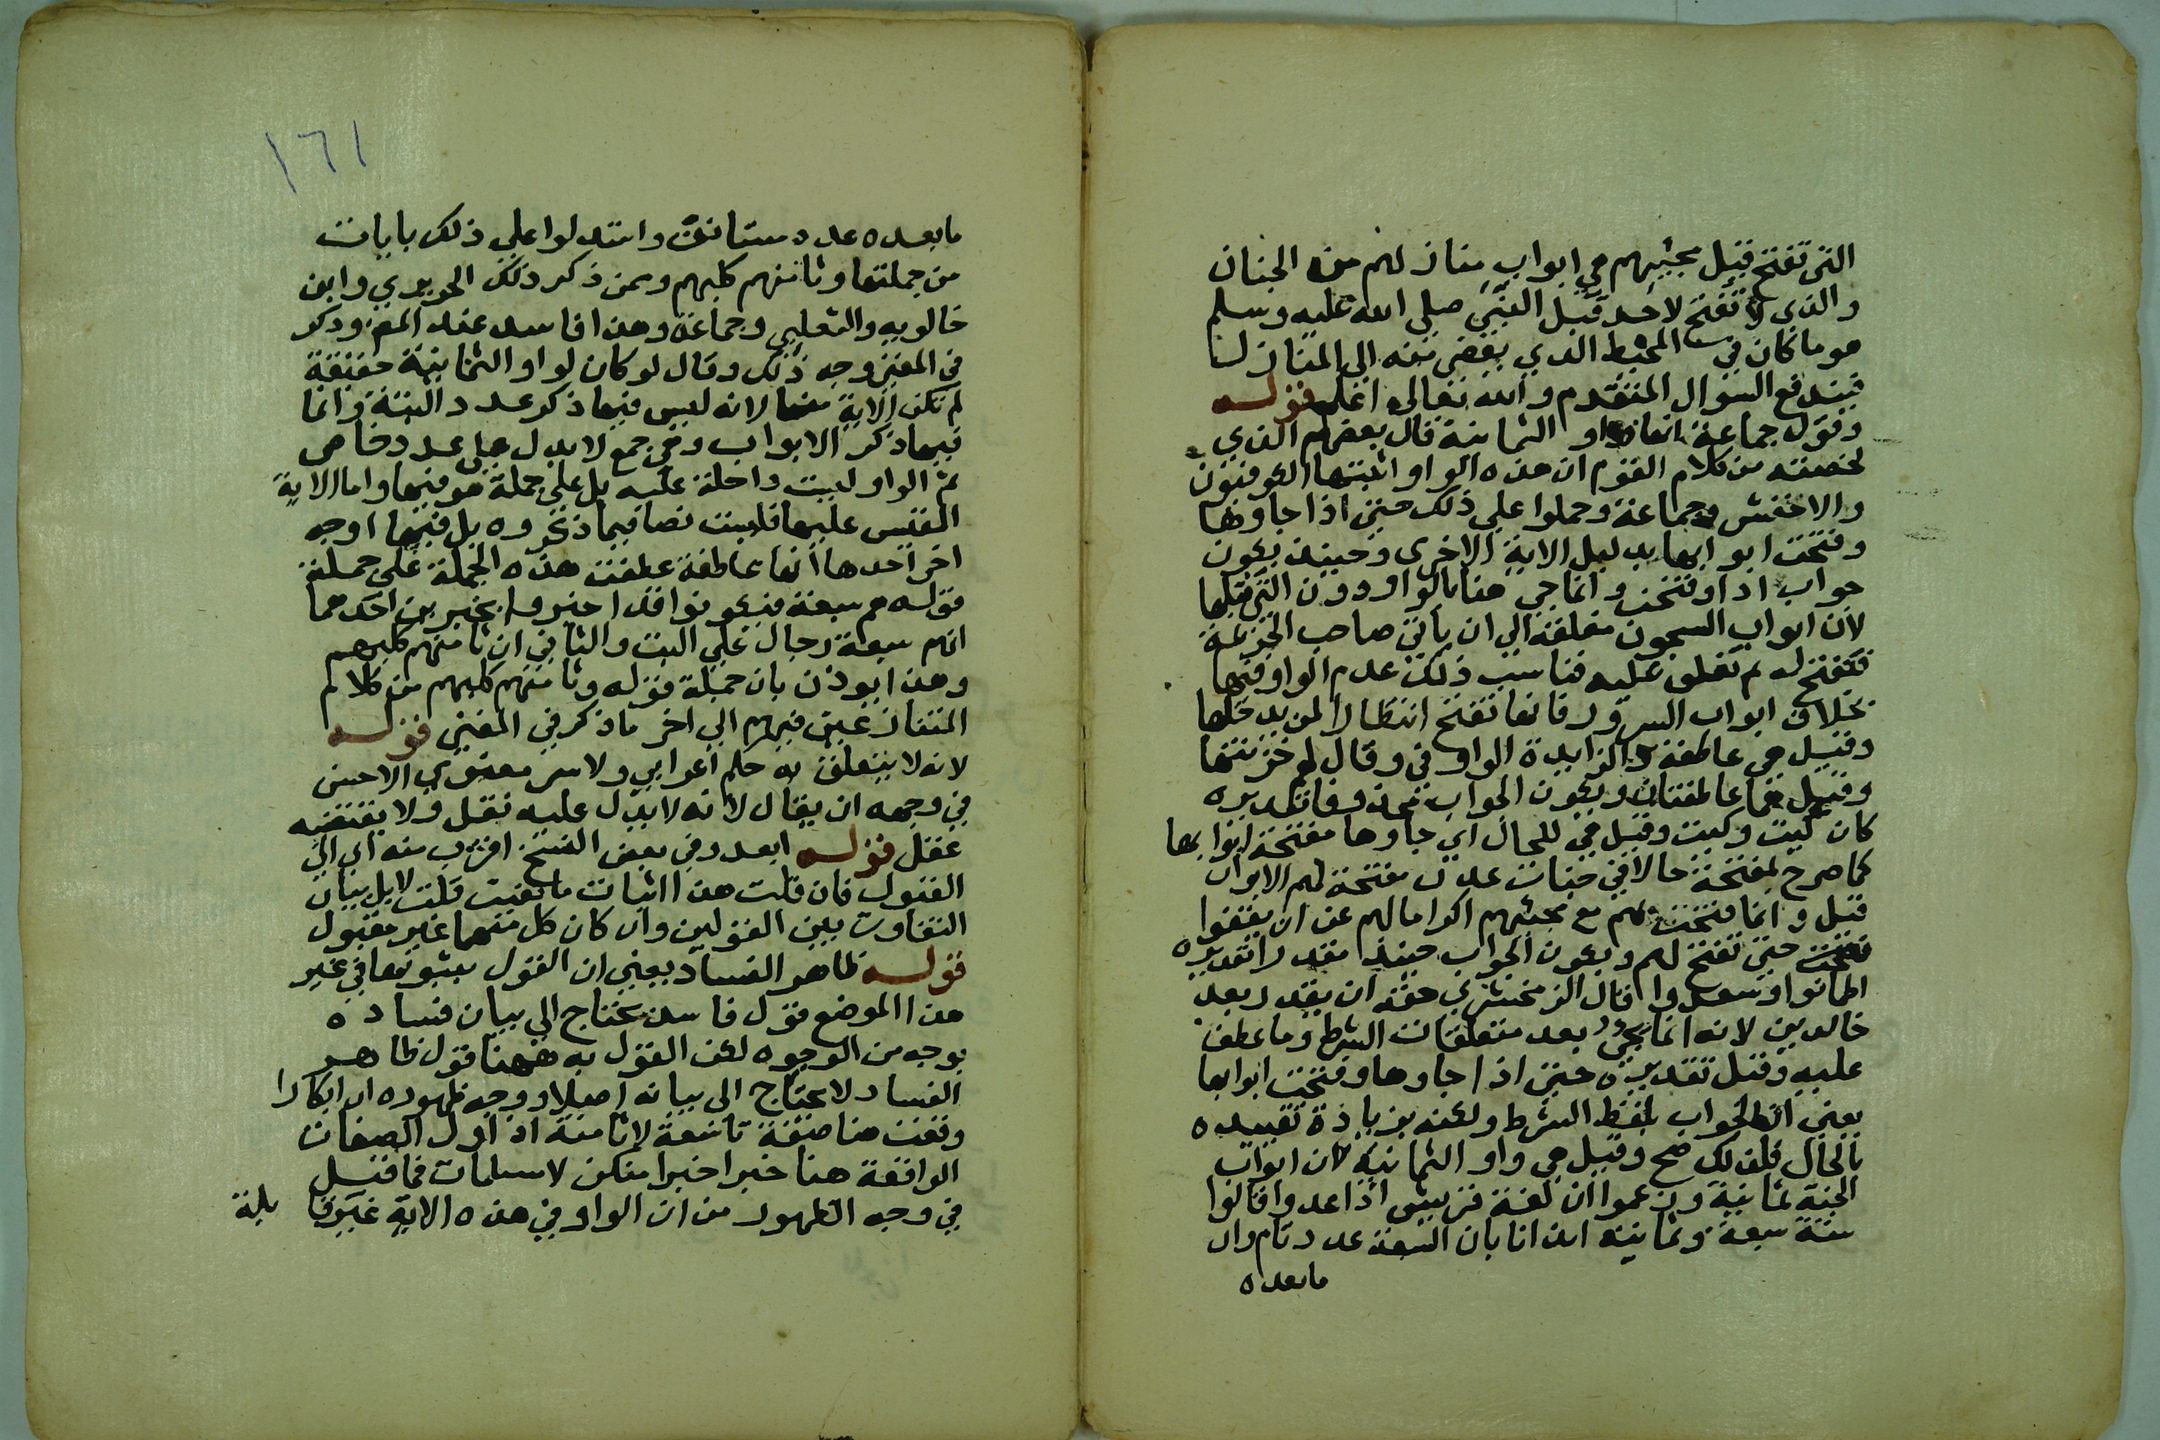 التى تفتح قبل مجيئهم هي ابواب منازلهم من الجنان
والذي لا تفتح لاحد قبل النبي صلى الله عليه وسلم
هو ما كان في المحيط الذي يفضى منه الى المنازل
فيندفع السوال المتقدم والله تعالى اعلم قوله
وقول جماعة انها واو الثمانية قال بعضهم الذي
لخصته من كلام القوم ان هذه الواو اثبتها الكوفيون
والاخفش وجماعة وحملوا على ذلك حتى اذا جاوها
وفتحت ابوابها بدليل الاية الاخرى وحينيذ يكون
جواب اذا وفتحت وانما جي هنا بالواو دون التي قبلها
لان ابواب السجون مغلقة الى ان ياتي صاحب الجريمة
فتفتح له ثم تغلق عليه فناسب ذلك عدم الواو فيها
بخلاف ابواب السرور فانها تفتح انتظارا لمن يدخلها
وقيل هي عاطفة والزايدة الواو في وقال لهم خزنتها
وقيل هما عاطفتان ويكون الجواب محذوفا تقديره
كان كيت وكيت وقيل هي للحال اي جاوها مفتحة ابوابها
كما صرح بمفتحة حالا في جنات عدن مفتحة لهم الابواب
قيل وانما فتحت لهم مع مجيئهم اكراما لهم عن ان يقفوا
حتى تفتح لهم ويكون الجواب حينيذ مقدرا تقديره
اطمانوا وسعدوا قال الزمخشري حقه ان يقدر بعد
خالدين لانه انما يجي بعد متعلقات الشرط وما عطف
عليه وقيل تقديره حتى اذا جاوها وفتحت ابوابها
يعني ان الجواب بلفظ الشرط ولكنه بزيادة تقييده
بالحال فلذلك صح وقيل هي واو الثمانية لان ابواب
الجنة ثمانية وزعموا ان لغة قريش اذا عدوا قالوا
ستة سبعة وثمانية ايذانا بان السبعة عدد تام وان
مابعده
١٦١
مابعده عدد مستانف واستدلوا على ذلك بايات
من جملتها وثامنهم كلبهم وممن ذكر ذلك الحريري وابن
خالويه والثعلبي وجماعة وهذا فاسد عند المص وذكر
في المغني وجه ذلك وقال لو كان لواو الثمانية حقيقة
لم تكن الاية منها لانه ليس فيها ذكر عدد البتة وانما
فيها ذكر الابواب وهي جمع لا يدل على عدد خاص
ثم الواو ليست داخلة عليه بل على جملة هو فيها واما الاية
المقيس عليها فليست نصا فيما ذكروه بل فيها اوجه
اخر احدها انها عاطفة عطفت هذه الجملة على جملة
قوله هم سبعة فيكونوا قد اخبروا بخبرين احدهما
انهم سبعة رجال على البت والثاني ان ثامنهم كلبهم
وهذا يوذن بان جملة قوله وثامنهم كلبهم من كلام
المتنازعين فيهم الى اخر ما ذكر في المغني قوله
لانه لا يتعلق به حكم اعرابي ولا سر معنوي الاحسن
في وجهه ان يقال لانه لا يدل عليه نقل ولا يقتضيه
عقل قوله ابعد وفي بعض النسخ اقرب منه اي الى
القبول فان قلت هذا اثبات ما نفيت قلت لا بل بيان
التفاوت بين القولين وان كان كل منهما غير مقبول
قوله ظاهر الفساد يعني ان القول بثبوتها في غير
هذا الموضع قول فاسد يحتاج الى بيان فساده
بوجه من الوجوه لكن القول به ههنا قول ظاهر
الفساد لا يحتاج الى بيانه اصلا ووجه ظهوره ان ابكارا
وقعت هنا صفة تاسعة لا ثامنة اذ اول الصفات
الواقعة هنا خيرا خيرا منكن لا مسلمات فما قيل
في وجه الظهور من ان الواو في هذه الاية غير